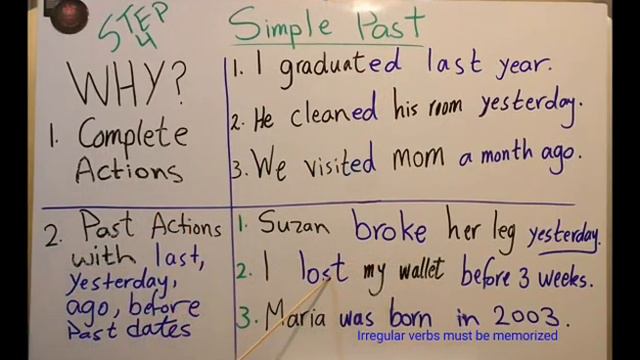 STEP 4
Simple Past
WHY?
1. Complete
Actions
1. I graduated last year.
2. He cleaned his room yesterday.
3. We visited mom a month ago.
2. Past Actions
with last,
yesterday,
ago, before
Past dates
1. Suzan broke her leg yesterday.
2. I lost my wallet before 3 weeks.
3. Maria was born in 2003.
Irregular verbs must be memorized